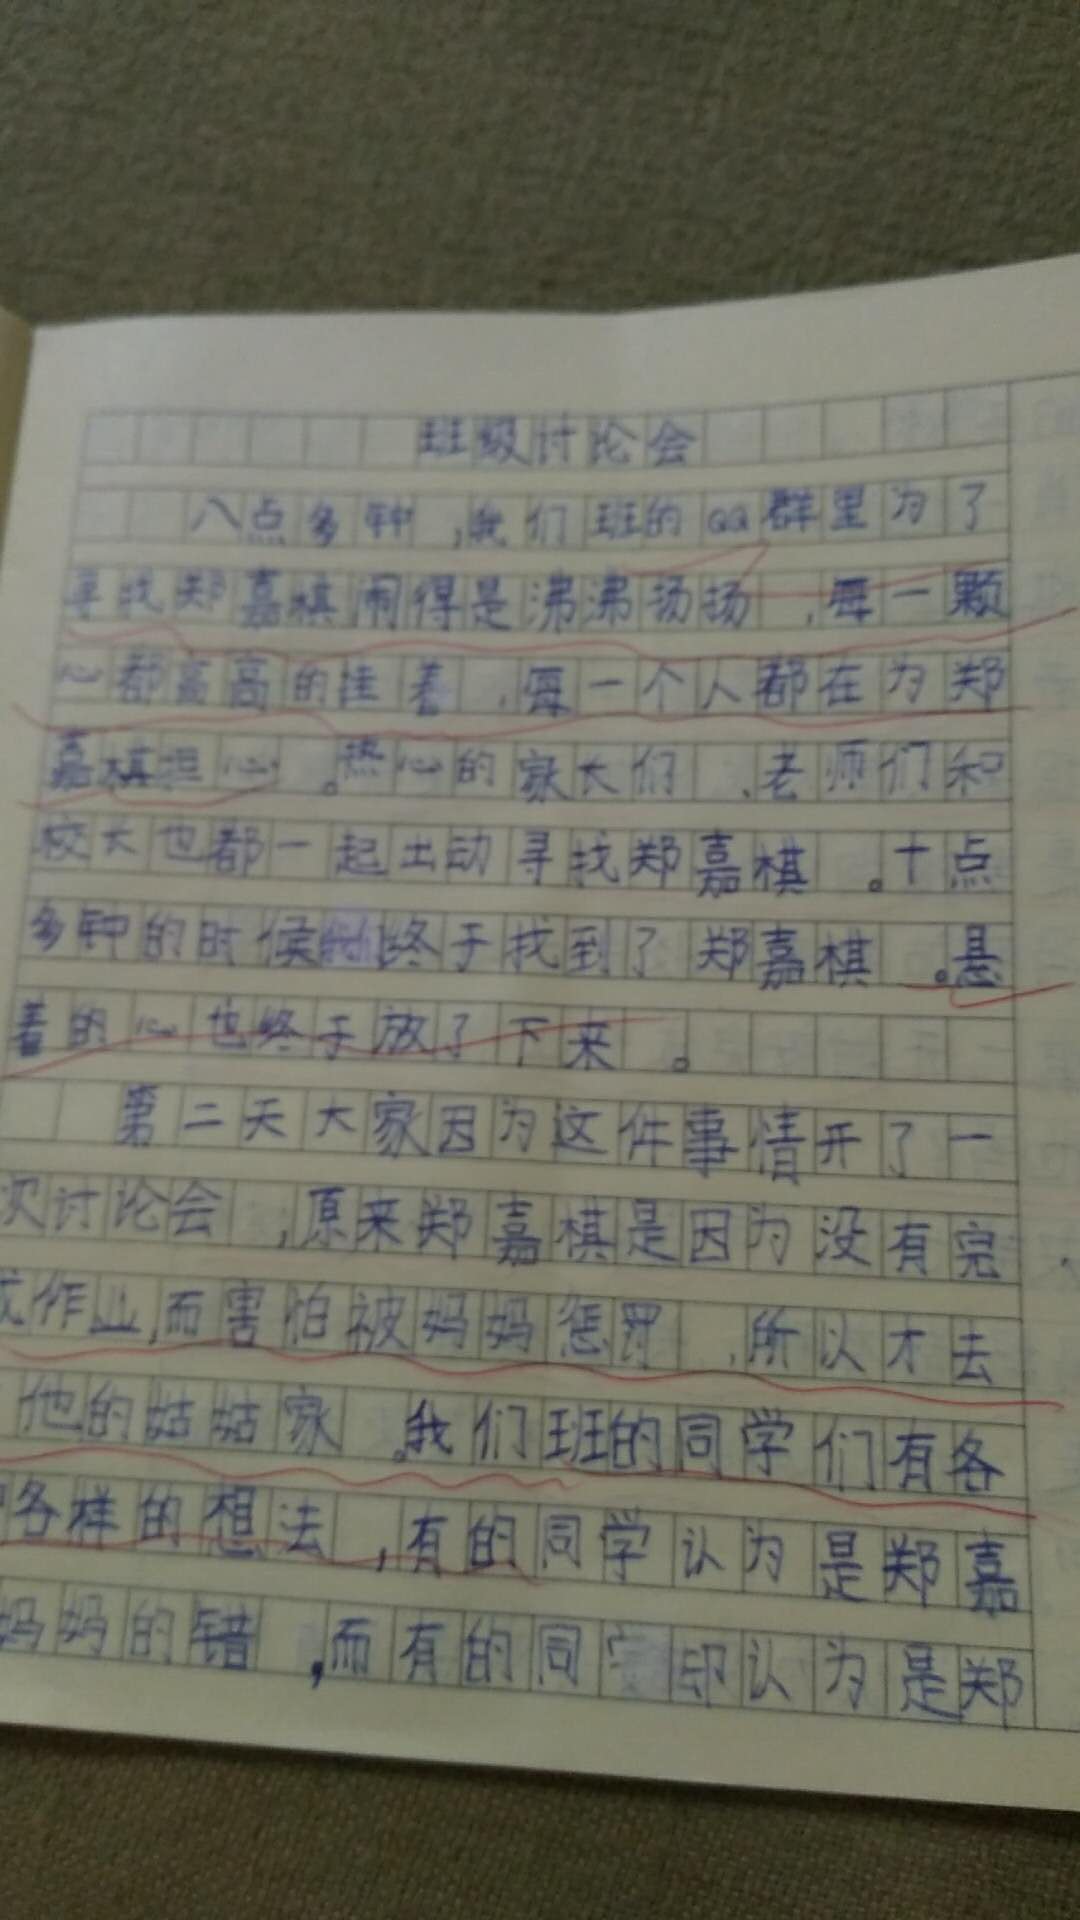 班级讨论会
八点多钟,我们班的QQ群里为了
寻找郑嘉棋闹得是沸沸扬扬,每一颗
心都高高的挂着,每一个人都在为郑
嘉棋担心。热心的家长们、老师们和
校长也都一起出动寻找郑嘉棋。十点
多钟的时候终于找到了郑嘉棋。悬
着的心也终于放了下来。
第二天大家因为这件事情开了一
次讨论会,原来郑嘉棋是因为没有完
成作业,而害怕被妈妈惩罚,所以才去
他的姑姑家。我们班的同学们有各
各样的想法,有的同学认为是郑嘉
妈妈的错,而有的同学却认为是郑